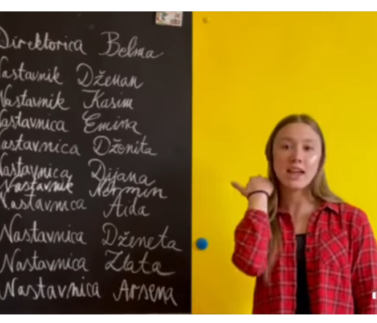 Direktorica Belma
Nastavnik Dženan
Nastavnik Kasim
Nastavnica Emina
Nastavnica Dženita
Nastavnica Dijana
Nastavnik Nermin
Nastavnica Aida
Nastavnica Dženeta
Nastavnica Zlata
Nastavnica Arsena